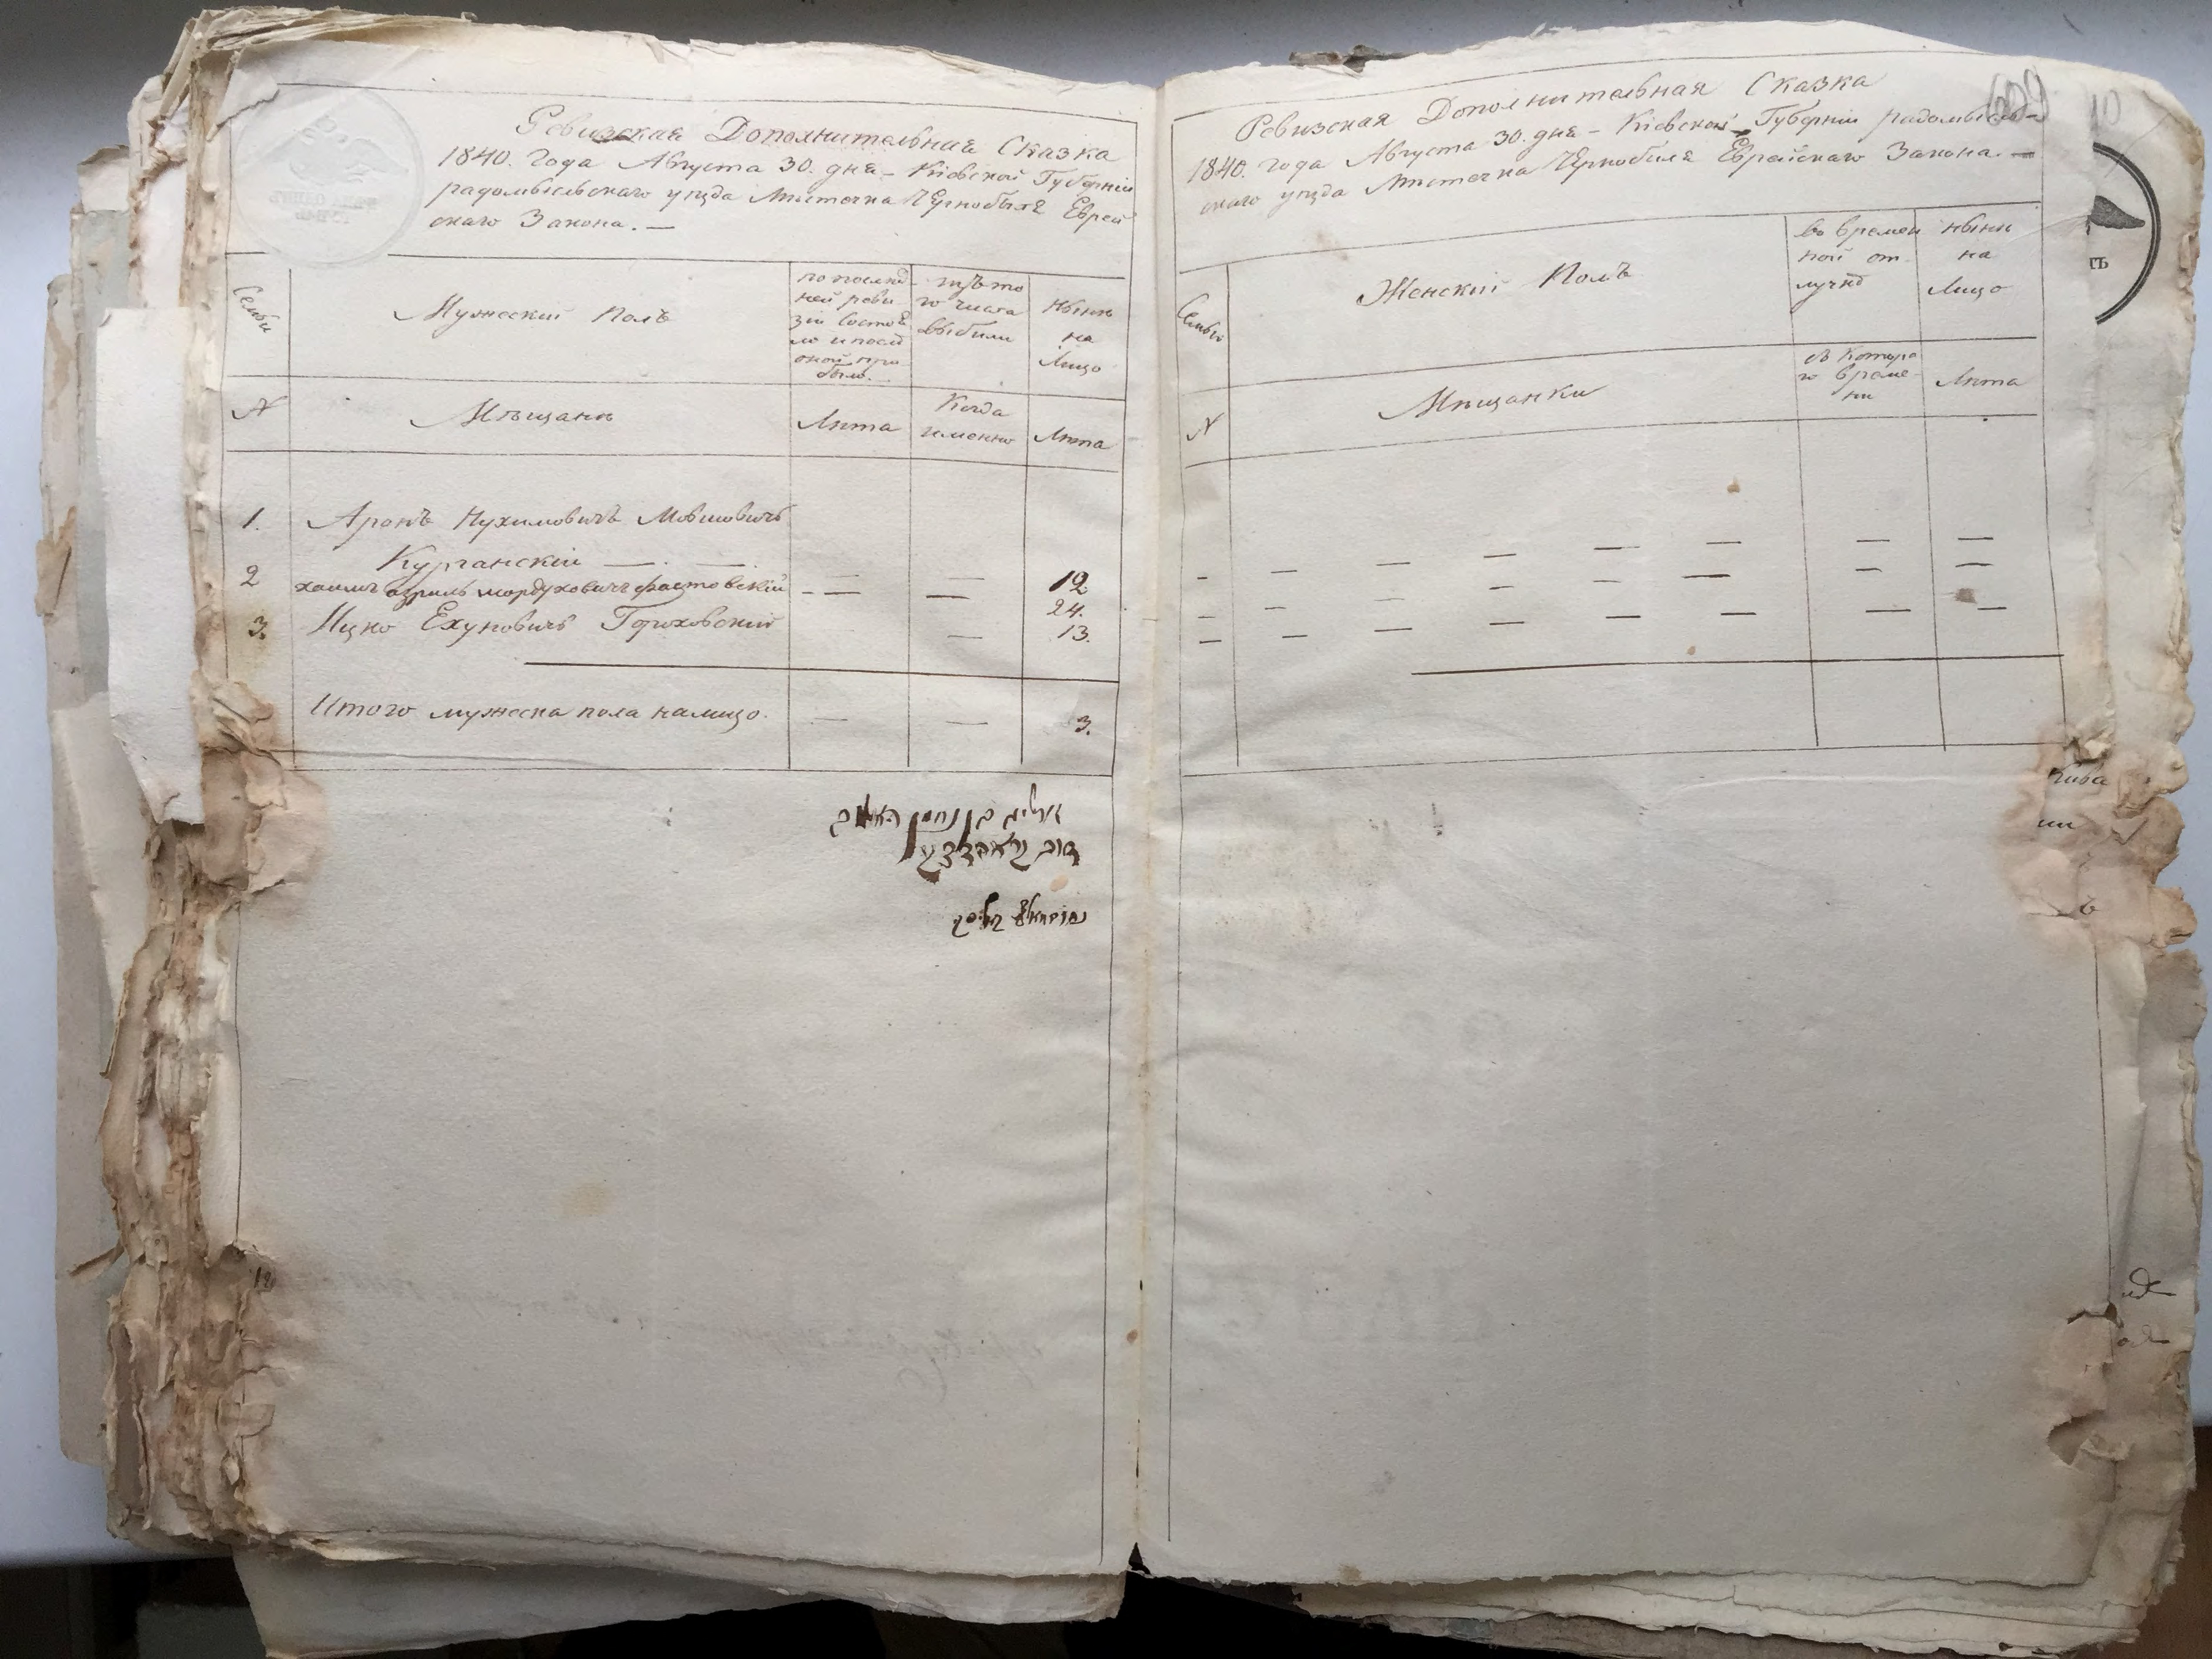 Ревизская Дополнительная Сказка
1840. Года Августа 30. дня – Кіевской Губерніи
радомысльскаго уѣзда Мѣстечка Чернобыля Еврей
скаго Закона. —
Семьи
Мужескій Полъ
по послѣд
ней реви
зіи состоя
ло и послѣ
оной при
было.
изъ то
го числа
выбыли
Нынѣ
на
Лицо
№
Мѣщанѣ
Лѣта
Когда
именно
Лѣта
1. Аронъ Нухимовичъ Мовшовичъ
Курганскій — . —
19
2 хаимъ азриль мордуховичъ фастовскій - — — 24.
3. Ицко Ехуновичъ Гороховскій — 13.
Итого мужеска пола налицо. — — 3.
Ревизская Дополнительная Сказка
1840. года Августа 30. дня – Кіевской Губерніи радомысль-
скаго уѣзда Мѣстечка Чернобыля Еврейскаго Закона. —
609
10
Семьи
Женскій Полъ
во времен
ной от
лучкѣ
нынѣ
на
Лицо
№
Мѣщанки
съ котора
го време-
ни
Лѣта